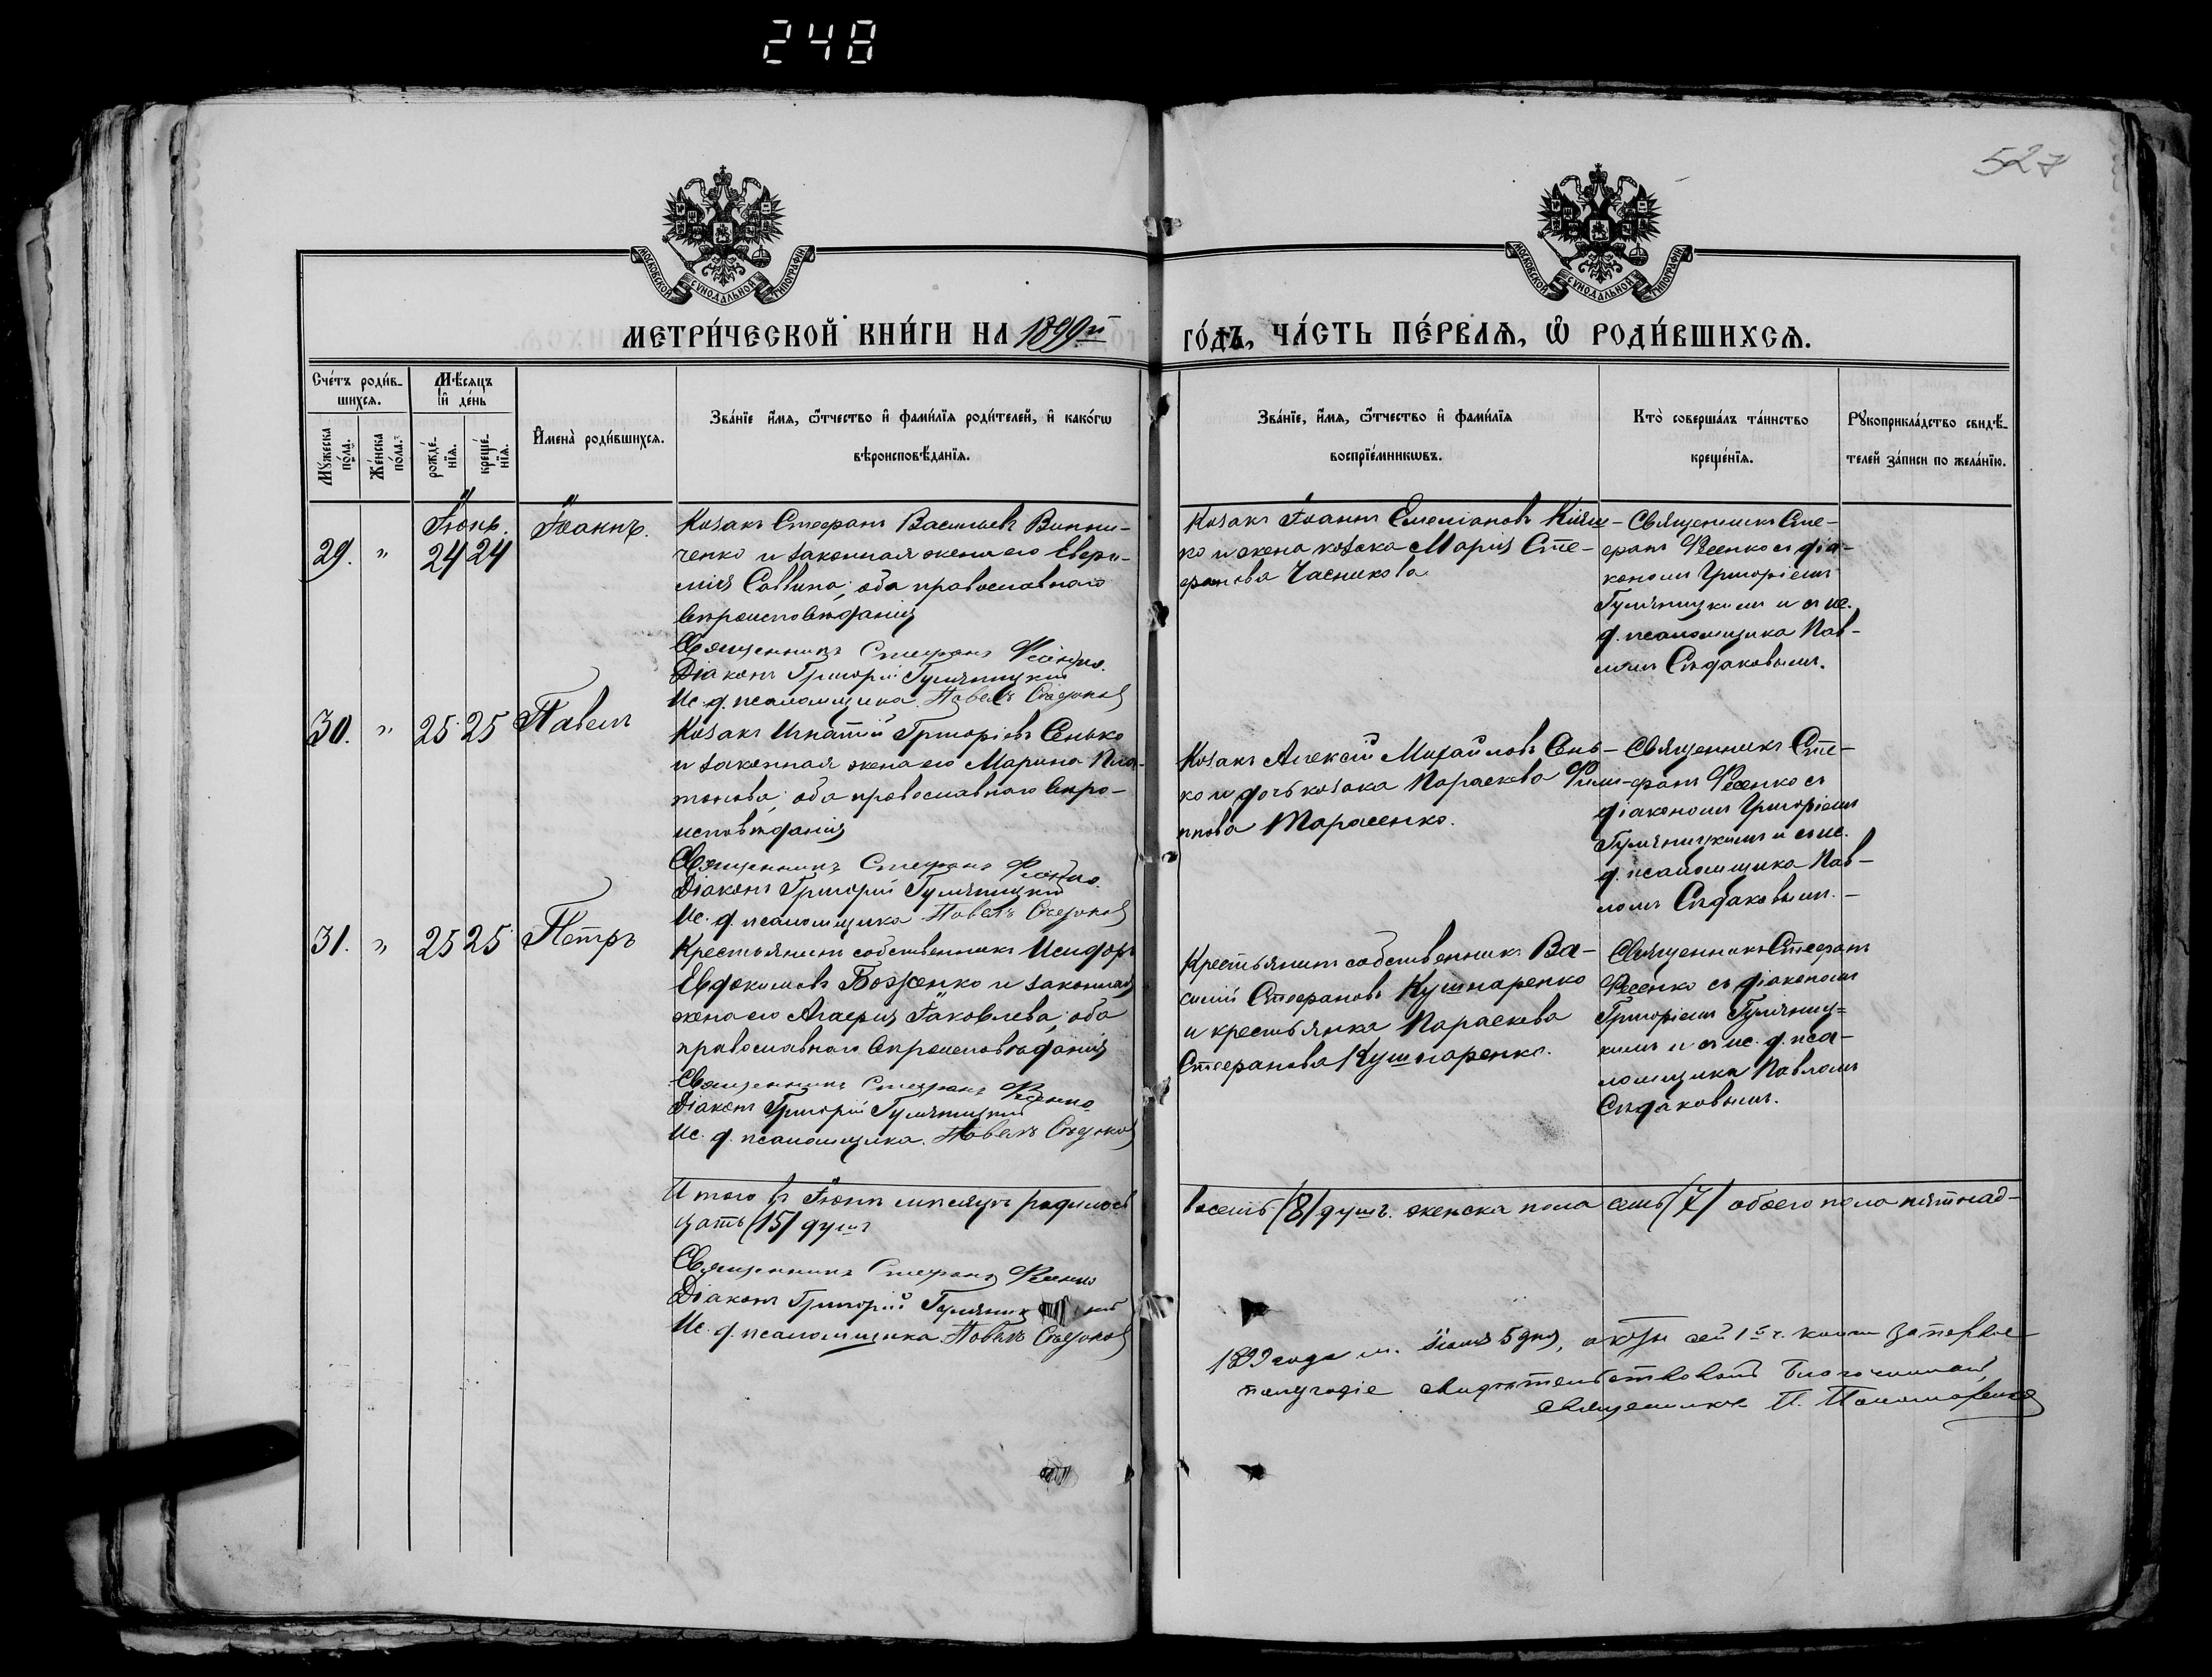 248
527
МОСКОВСКОЙ СУНОДАЛЬНОЙ ТИПОГРАФІИ
МОСКОВСКОЙ СУНОДАЛЬНОЙ ТИПОГРАФІИ
МЕТРИ́ЧЕСКОЙ КНИ́ГИ НА 1899й ГО́ДЪ, ЧА́СТЬ ПЕ́РВАѦ, Ѡ РОДИ́ВШИХСѦ.
Сче́тъ роди́в-
шихсѧ.
Мꙋжеска по́ла.
Же́нска по́ла.
Мѣ́сяцъ
и҆ де́нь
рожде́-
нїѧ.
креще́-
нїѧ.
И҆мена̀ роди́вшихсѧ.
Зва́нїе и҆́мѧ, ѻ҆́тчество и҆ фами́лїѧ роди́телей, и҆ како́гѡ
вѣроисповѣ́данїѧ.
Зва́нїе, и҆́мѧ, ѻ҆́тчество и҆ фами́лїѧ
воспрїе́мникѡвъ.
Кто̀ соверша́лъ та́инство
креще́нїѧ.
Рꙋкоприкла́дство свидѣ́-
телей за́писи по жела́нїю.
Іюнь.
29. " 24 24
Іоаннъ.
Козакъ Стефанъ Васильевъ Винни-
ченко и законная жена его Евфи-
мія Саввина, оба православнаго
вѣроисповѣданія
Священникъ Стефанъ Фесенко.
Діаконъ Григорій Гуляницкій
Ис. д. псаломщика Павелъ Сѣдаковъ
Козакъ Іоаннъ Емеліановъ Кіяш-
ко и жена козака Марія Сте-
фанова Часникова
Священникъ Сте-
фанъ Фесенко съ діа-
кономъ Григоріемъ
Гуляницкимъ и съ ис.
д. псаломщика Пав-
ломъ Сѣдаковымъ.
30. " 25 25
Павелъ
Козакъ Игнатій Григоріевъ Сенько
и законная жена его Марина Пла-
тонова, оба православнаго вѣро-
исповѣданія
Священникъ Стефанъ Фесенко.
Діаконъ Григорій Гуляницкій
Ис. д. псаломщика Павелъ Сѣдаковъ
Козакъ Алексій Михайловъ Сень-
ко и дочь козака Параскева Фили-
ппова Тарасенко.
Священникъ Сте-
фанъ Фесенко съ
діакономъ Григоріемъ
Гуляницкимъ и съ ис.
д. псаломщика Пав-
ломъ Сѣдаковымъ. -
31. " 25 25
Петръ
Крестьянинъ собственникъ Исидоръ
Евдокимовъ Боженко и законная
жена его Агафія Іаковлева, оба
православнаго вѣроисповѣданія
Священникъ Стефанъ Фесенко
Діаконъ Григорій Гуляницкій
Ис. д. псаломщика Павелъ Сѣдаковъ
Крестьянинъ собственникъ Ва-
силій Стефановъ Кушнаренко
и крестьянка Параскева
Стефанова Кушнаренко.
Священникъ Стефанъ
Фесенко съ діакономъ
Григоріемъ Гуляниц=
кимъ и съ ис. д. пса-
ломщика Павломъ
Сѣдаковымъ.
Итого въ Іюнѣ мѣсяцѣ родилось восемь (8) душъ. женска пола семь (7) обоего пола пятнад-
цать (15) душъ
Священникъ Стефанъ Фесенко
Діаконъ Григорій Гуляницкій
Ис. д. псаломщика Павелъ Сѣдаковъ
1899 года м. 5 дня, сей 1й ч. книги за первое
полугодіе свидѣтельствовалъ Благочинный,
священникъ П. Пономаренко